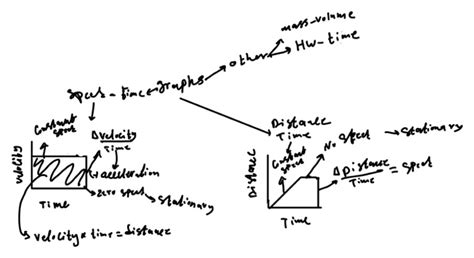 mass-volume
other
HW-time
graphs
speed-time
Distance
Time
Constant
speed
No speed
Stationary
Constant
speed
Δvelocity
Time
acceleration
Velocity
Time
zero speed
Stationary
velocity × time = distance
Distance
Time
Δ Distance
Time
= speed